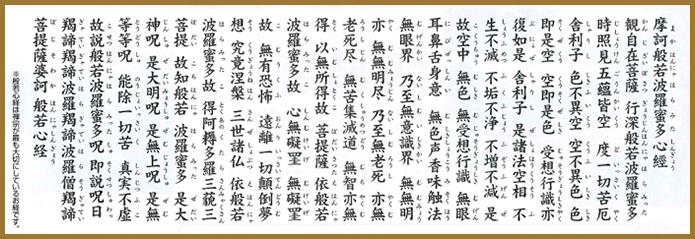 摩訶般若波羅蜜多心経
観自在菩薩 行深般若波羅蜜多
時照見五蘊皆空 度一切苦厄
舎利子 色不異空 空不異色 色
即是空 空即是色 受想行識亦
復如是 舎利子 是諸法空相 不
生不滅 不垢不浄 不増不減 是
故空中 無色 無受想行識 無眼
耳鼻舌身意 無色声香味触法
無眼界 乃至無意識界 無無明
亦無無明尽 乃至無老死 亦無
老死尽 無苦集滅道 無智亦無
得 以無所得故 菩提薩埵 依般若
波羅蜜多故 心無罣礙 無罣礙
故 無有恐怖 遠離一切顛倒夢
想 究竟涅槃 三世諸仏 依般若
波羅蜜多故 得阿耨多羅三藐三
菩提 故知般若 波羅蜜多 是大
神呪 是大明呪 是無上呪 是無
等等呪 能除一切苦 真実不虚
故説般若波羅蜜多呪 即説呪曰
羯諦羯諦波羅羯諦波羅僧羯諦
菩提薩婆訶 般若心経
※般若心経は禅宗が最も大切にしているお経です。